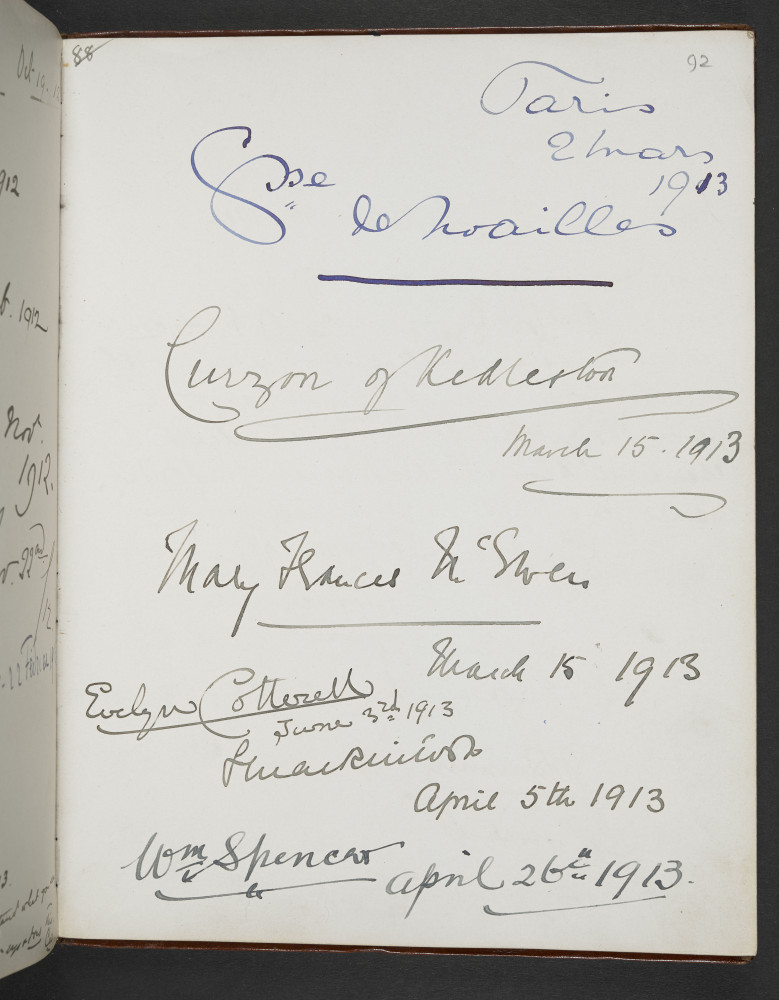 88
92
Paris
2 mars
1913
Csse de Noailles
Curzon of Kedleston
March 15. 1913
Mary Frances McEwen
March 15 1913
Evelyn Cotterell
June 3rd 1913
April 5th 1913
Wm Spencer April 26th 1913.
Oct 19.
912
1912
Nov.
1912.
22nd